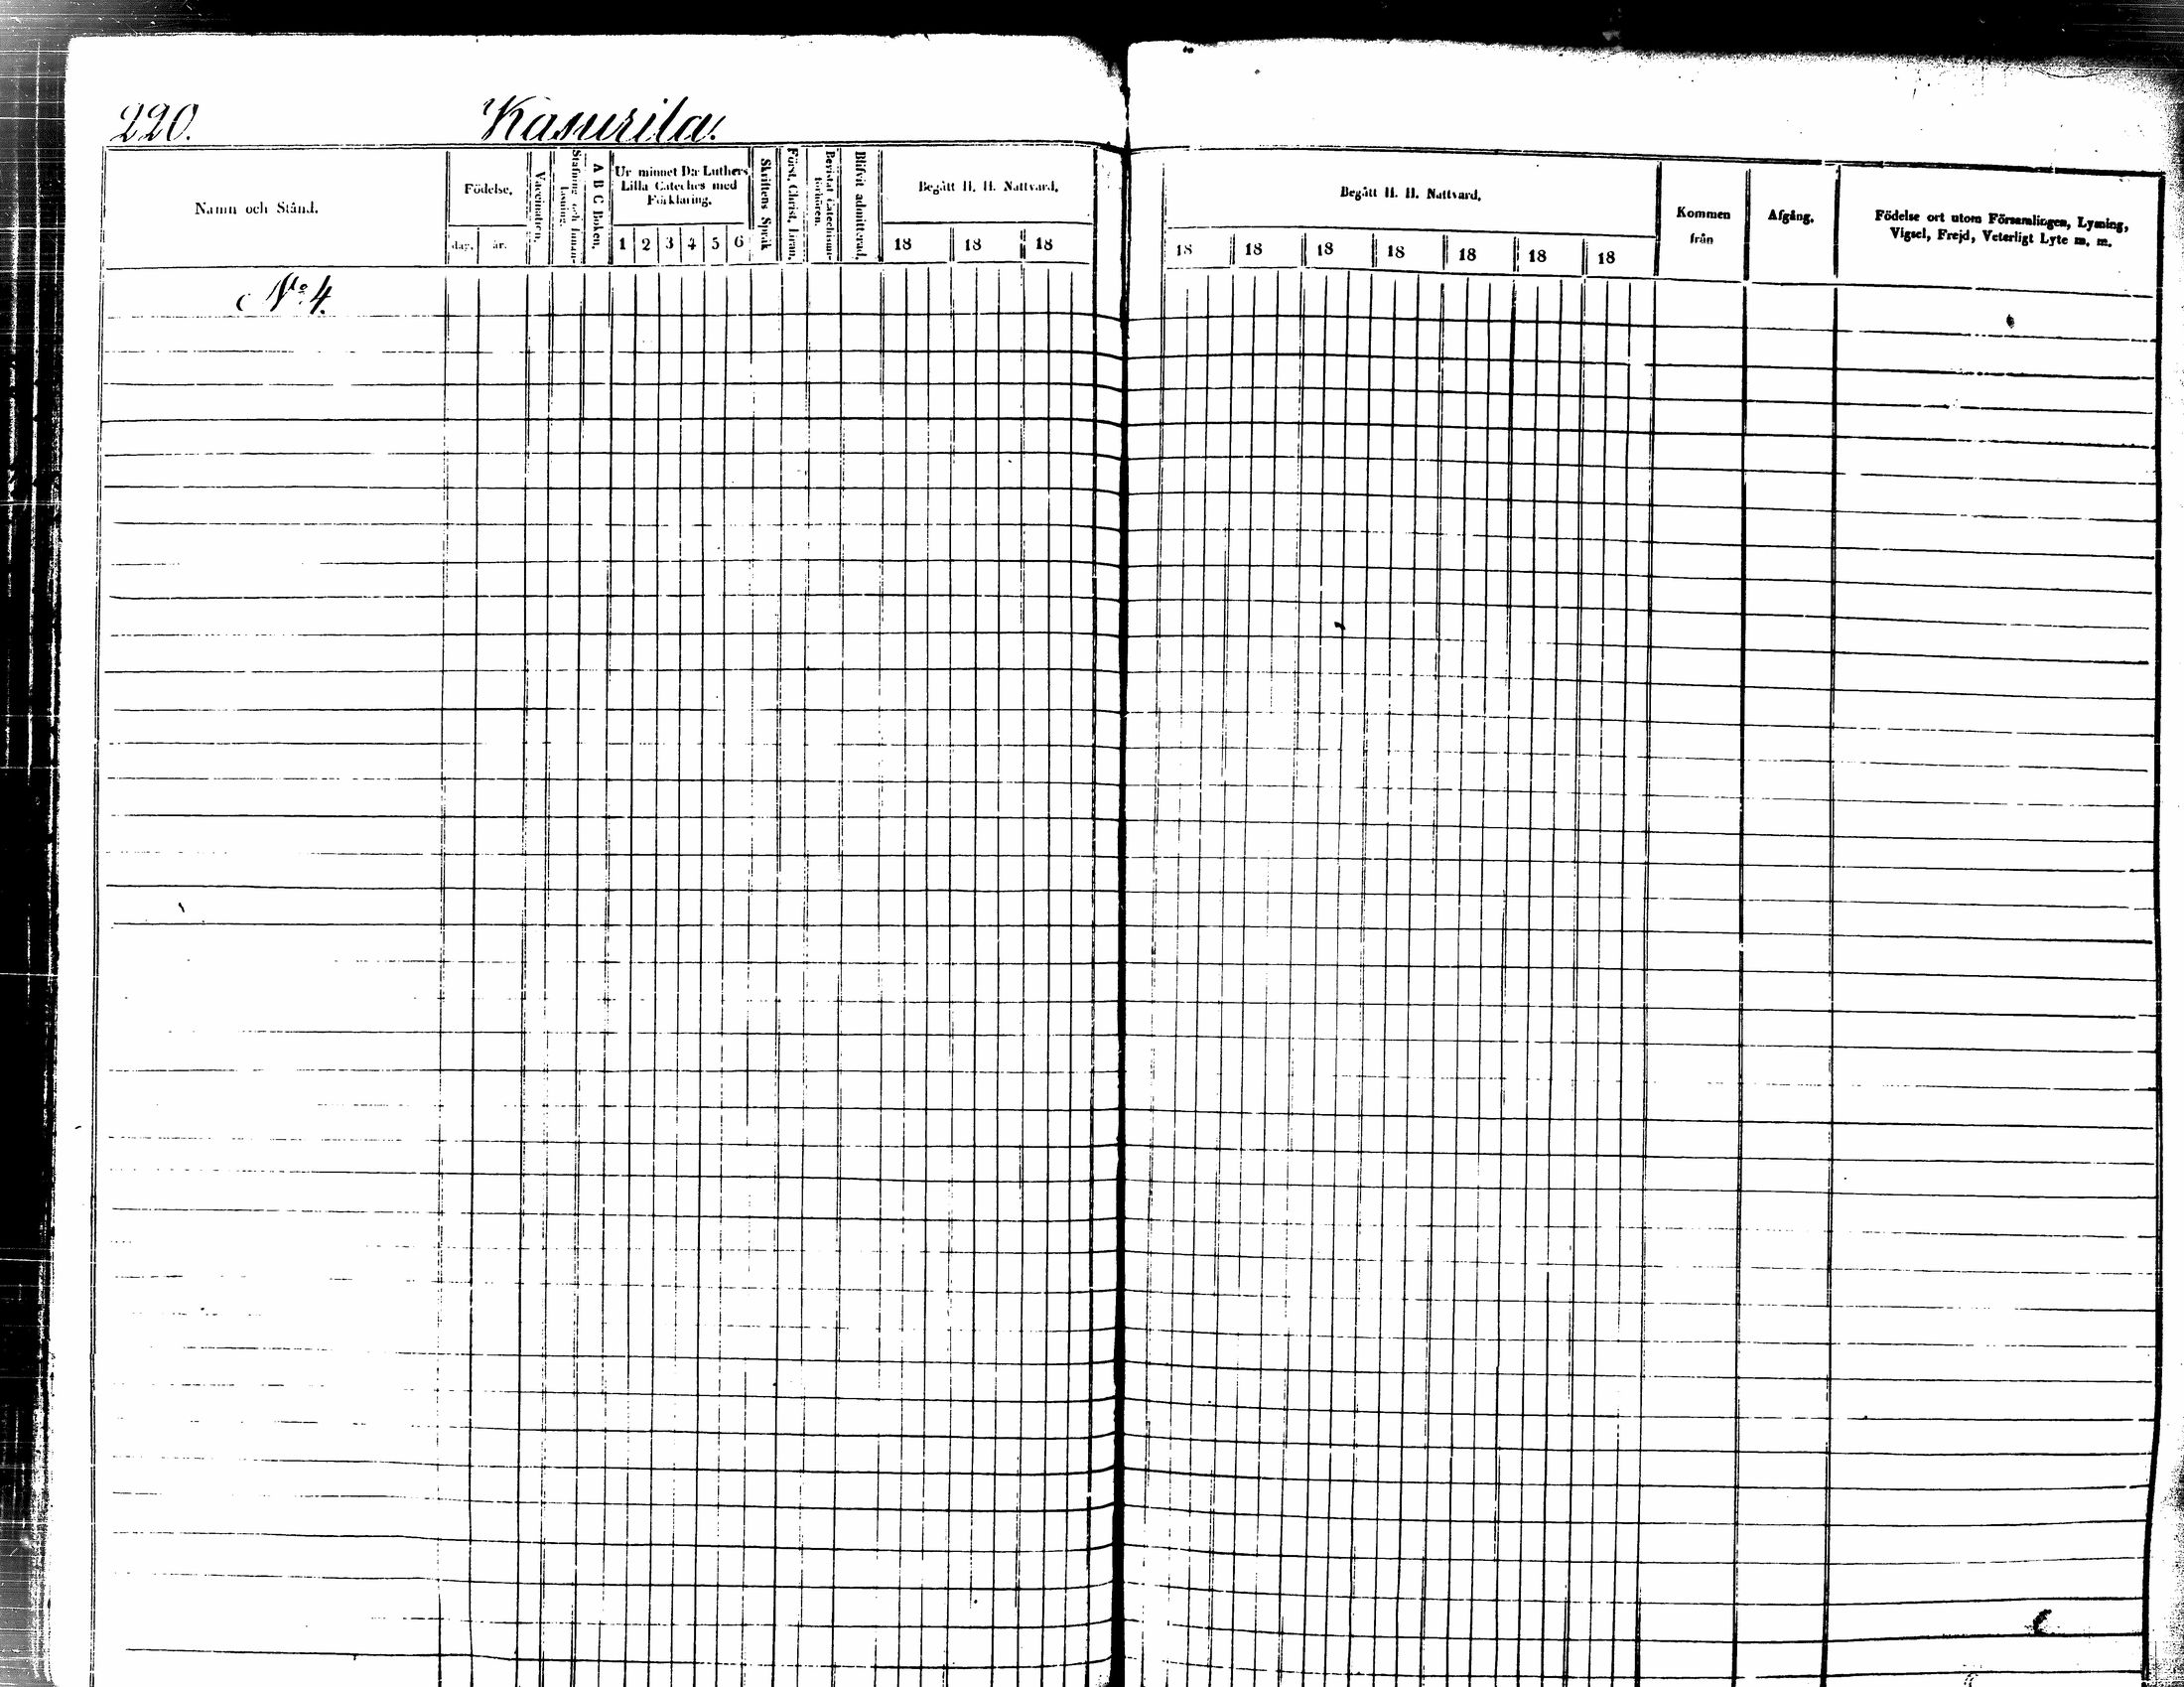 220. Kasurila.
Namn och Stånd.
Födelse.
dag. år.
Vaccination.
Stafning och Innanläsning.
A B C Boken.
Ur minnet D:r Luthers
Lilla Cateches med
Förklaring.
1 2 3 4 5 6
Skriftens Språk
Först. Christ. Läran.
Bevistat Catechismiförhören.
Blifvit admitterad.
Begått H. H. Nattvard.
18 18 18
Begått H. H. Nattvard.
18 18 18 18 18 18 18
Kommen
från
Afgång.
Födelse ort utom Församlingen, Lysning,
Vigsel, Frejd, Veterligt Lyte m. m.
No. 4.